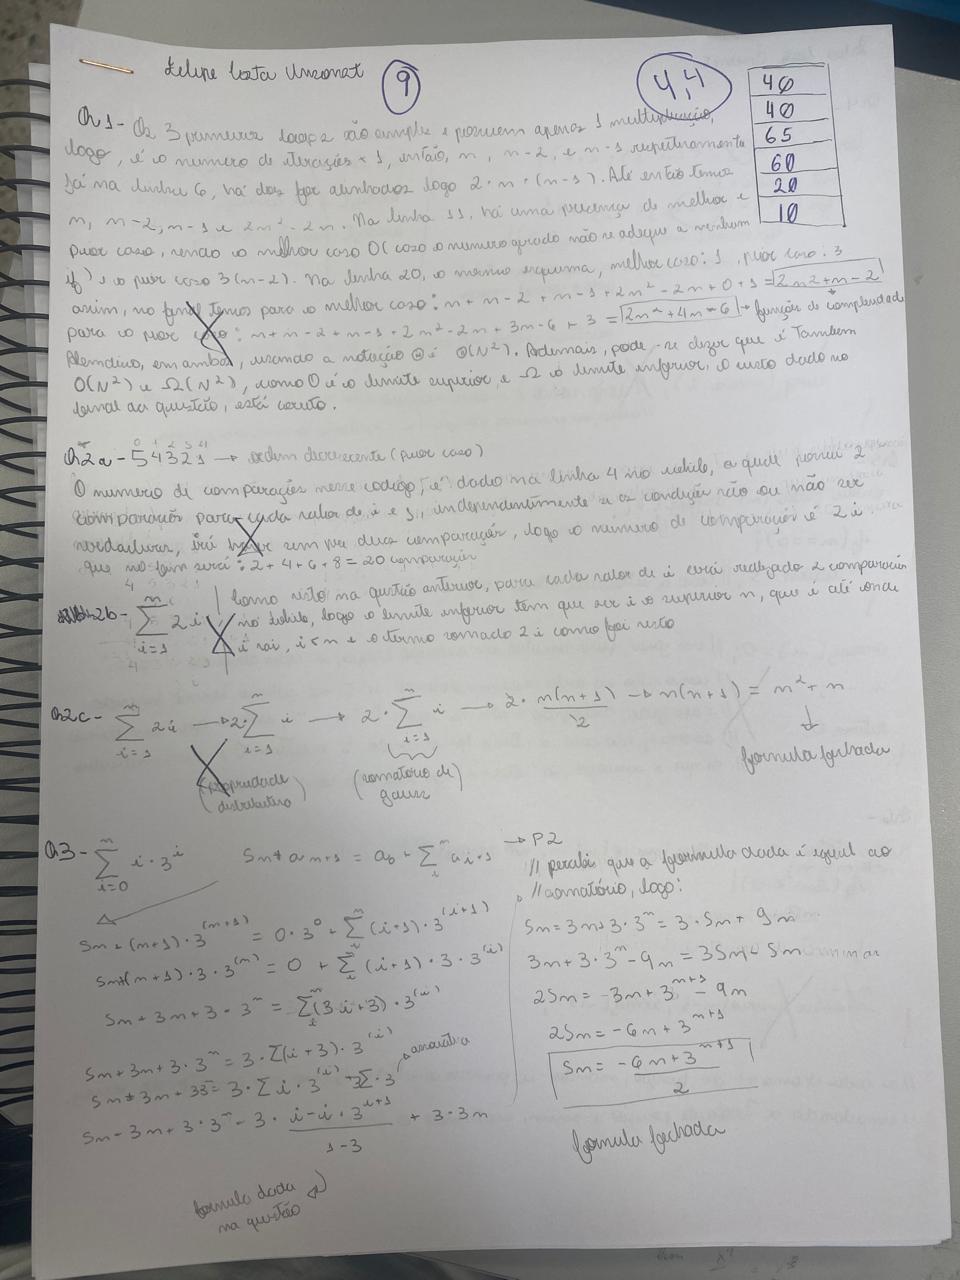 Felipe Costa Unsonst
9
4,4
40
40
65
60
20
10
Q1- Os 3 primeiros loops são simples e possuem apenas 1 multiplicação,
logo, é o numero de iterações * 1, então, n, n-2, e n-1 respectivamente
Já na linha 6, há dois for alinhados logo 2·n·(n-1). Até então temos
n, n-2, n-1 e 2n²-2n. Na linha 11, há uma presença de melhor e
pior caso, sendo o melhor caso 0 (caso o numero gerado não se adeque a nenhum
if) e o pior caso 3(n-2). Na linha 20, o mesmo esquema, melhor caso: 1, pior caso: 3
assim, no final temos para o melhor caso: n+n-2+n-1+2n²-2n+0+1=2n²+n-2
para o pior caso: n+n-2+n-1+2n²-2n+3n-6+3=2n²+4n-6 → função de complexidade
Alemdisso, em ambos, usando a notação Θ é Θ(N²). Ademais, pode-se dizer que é Também
O(N²) e Ω(N²), como O é o limite superior, e Ω o limite inferior, o custo dado no
final da questão, está correto.
0 1 2 3 4
Q2a- 54321 → ordem decrescente (pior caso)
O numero de comparações nesse codigo, é dado na linha 4 no while, a qual possui 2
comparações para cada valor de i e j, independentemente se as condição são ou não ser
verdadeiras, irá haver sempre duas comparações, logo o número de comparação é 2i
que no fim será: 2+4+6+8=20 comparações
2b- n ∑ i=1 2i
Como visto na questão anterior, para cada valor de i será realizado 2 comparações
no while, logo o limite inferior tem que ser i e o superior n, que é até onde
i vai, i<n e o termo somado 2i como foi visto
Q2c- n ∑ i=1 2i → 2· n ∑ i=1 i → 2· n ∑ i=1 i → 2· n(n+1)/2 → n(n+1) = n²+n
(propriedade distributiva)
(somatório de gauss)
formula fechada
Q3- n ∑ i=0 i·3^i Sn+an+1 = a0+ n ∑ i ai+1 → P2
Sn+(n+1)·3^(n+1) = 0·3^0+ n ∑ i (i+1)·3^(i+1)
Sn+(n+1)·3·3^(n) = 0+ n ∑ i (i+1)·3·3^(i)
Sn+3n+3·3^n = n ∑ i (3i+3)·3^(i)
Sn+3n+3·3^n = 3·∑(i+3)·3^(i)
formula dada
na questão
// percebi que a formula dada é igual ao
// somatório, logo:
Sn=3n+3·3^n = 3·Sn+9n
3n+3·3^n-9n = 3Sn-Sn
2Sn = -3n+3^n+1-9n
2Sn = -6n+3^n+1
Sn = -6n+3^n+1 / 2
formula fechada